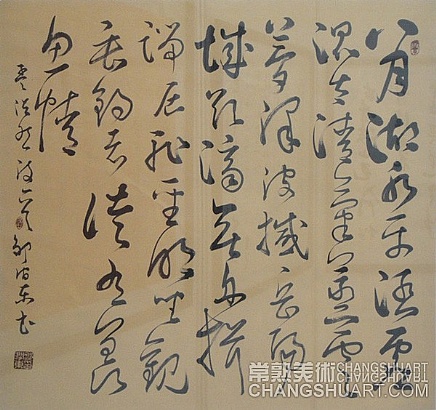 八月湖水平涵虚
混太清气蒸云
梦泽波撼岳阳
城欲济无舟楫
端居耻圣明坐观
垂钓者徒有羡
鱼情
孟浩然诗一首 邹东书
常熟美術 CHANGSHUART
CHANGSHUART.COM